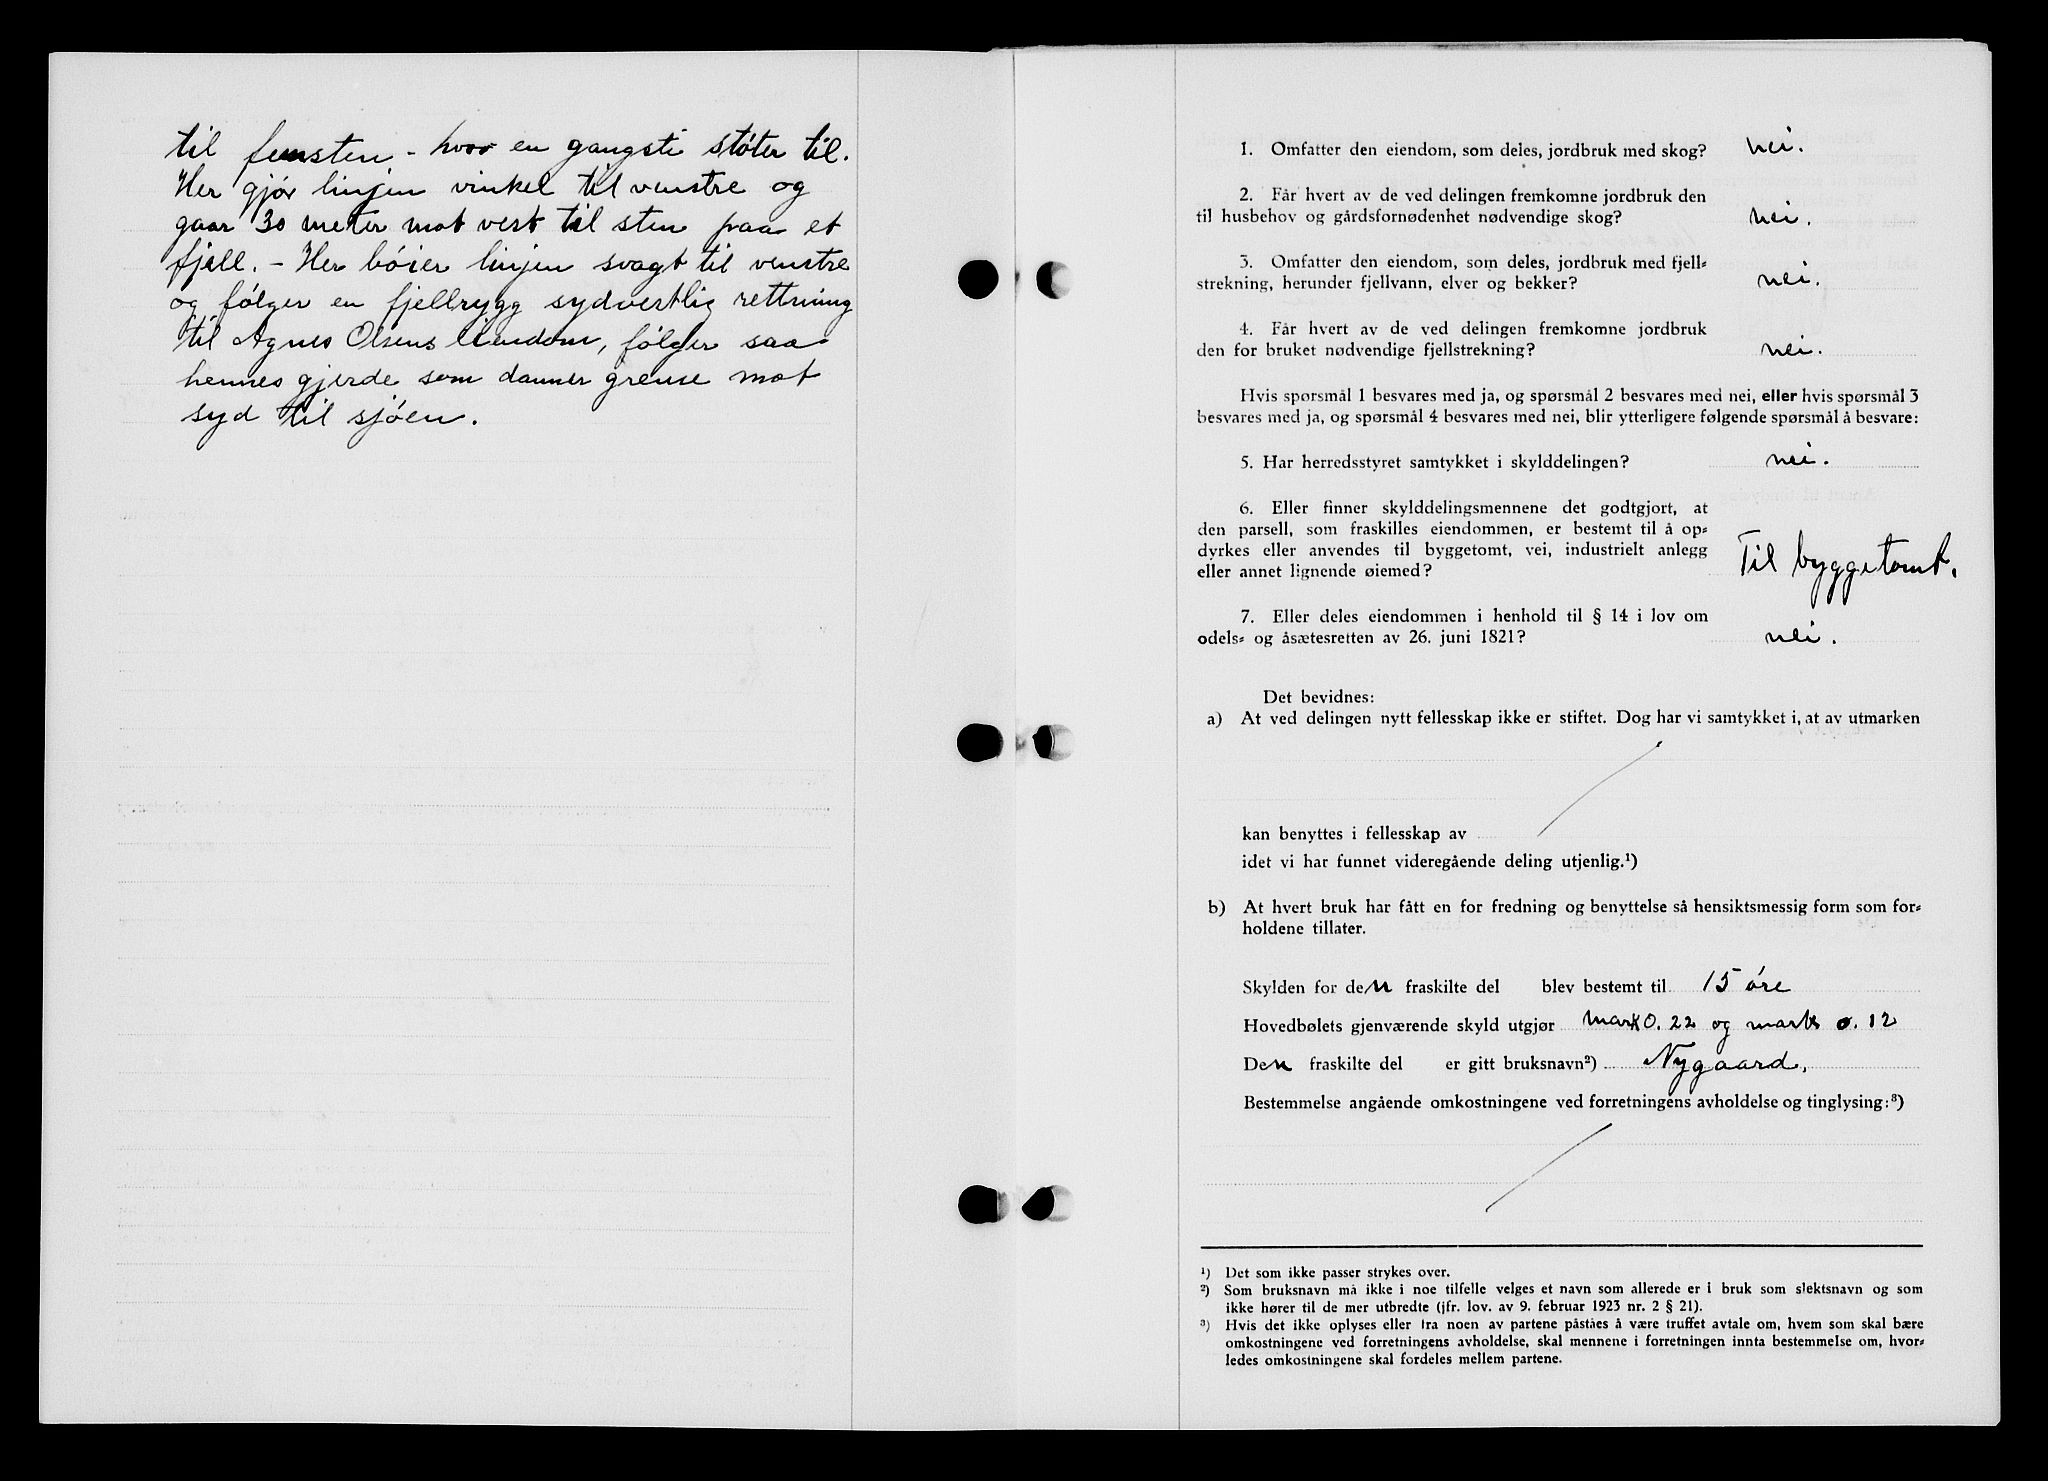 til femsten - hvor en gangsti støter til.
Her gjør linjen vinkel til venstre og
gaar 30 meter mot vest til sten paa et
fjell. - Her bóier linjen svagt til venstre
og følger en fjellrygg sydvestlig rettning
til Agnes Olsens Eiendom, følger saa
hennes gjerde som danner grense mot
syd til sjóen.
1. Omfatter den eiendom, som deles, jordbruk med skog? nei.
2. Får hvert av de ved delingen fremkomne jordbruk den
til husbehov og gårdsfornødenhet nødvendige skog? nei.
3. Omfatter den eiendom, som deles, jordbruk med fjell=
strekning, herunder fjellvann, elver og bekker? nei.
4. Får hvert av de ved delingen fremkomne jordbruk
den for bruket nødvendige fjellstrekning? nei.
Hvis spørsmål 1 besvares med ja, og spørsmål 2 besvares med nei, eller hvis spørsmål 3
besvares med ja, og spørsmål 4 besvares med nei, blir ytterligere følgende spørsmål å besvare:
5. Har herredsstyret samtykket i skylddelingen? nei.
6. Eller finner skylddelingsmennene det godtgjort, at
den parsell, som fraskilles eiendommen, er bestemt til å op=
dyrkes eller anvendes til byggetomt, vei, industrielt anlegg
eller annet lignende øiemed? Til byggetomt.
7. Eller deles eiendommen i henhold til § 14 i lov om
odels= og åsætesretten av 26. juni 1821? nei.
Det bevidnes:
a) At ved delingen nytt fellesskap ikke er stiftet. Dog har vi samtykket i, at av utmarken
kan benyttes i fellesskap av
idet vi har funnet videregående deling utjenlig.¹)
b) At hvert bruk har fått en for fredning og benyttelse så hensiktsmessig form som for=
holdene tillater.
Skylden for den fraskilte del blev bestemt til 15 óre
Hovedbølets gjenværende skyld utgjør mark 0.22 og mark 0.12
Den fraskilte del er gitt bruksnavn²) Nygaard.
Bestemmelse angående omkostningene ved forretningens avholdelse og tinglysing:³)
¹) Det som ikke passer strykes over.
²) Som bruksnavn må ikke i noe tilfelle velges et navn som allerede er i bruk som slektsnavn og som
ikke hører til de mer utbredte (jfr. lov. av 9. februar 1923 nr. 2 § 21).
³) Hvis det ikke oplyses eller fra noen av partene påståes å være truffet avtale om, hvem som skal bære
omkostningene ved forretningens avholdelse, skal mennene i forretningen innta bestemmelse om, hvor=
ledes omkostningene skal fordeles mellem partene.